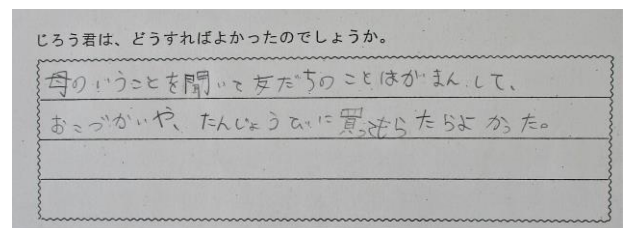 じろう君は、どうすればよかったのでしょうか。
母のいうことを聞いて友だちのことはがまんして、
おこづかいや、たんじょうびに買ってもらたらよかった。